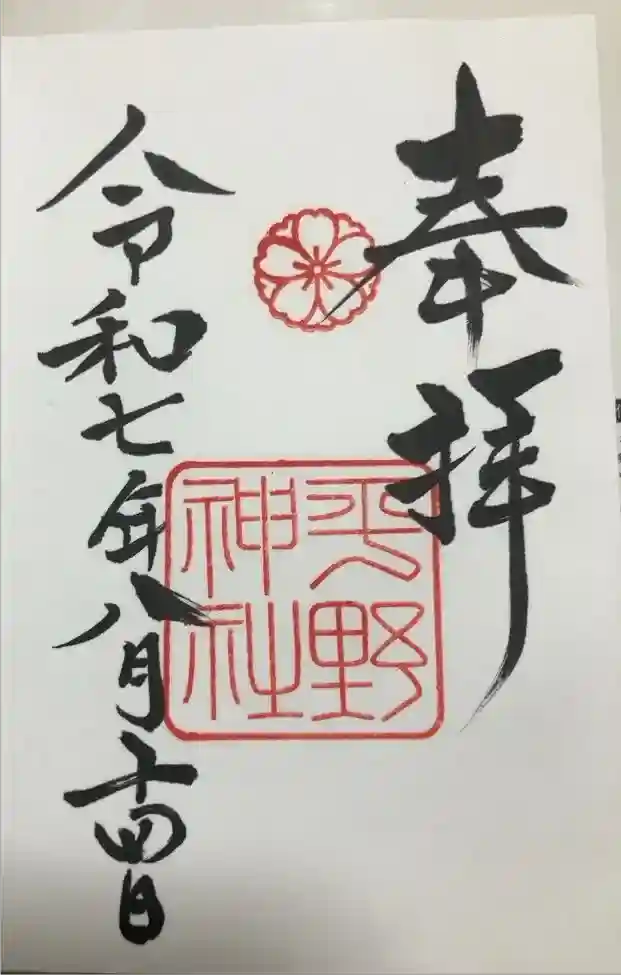 奉拝
平野神社
令和七年八月十四日